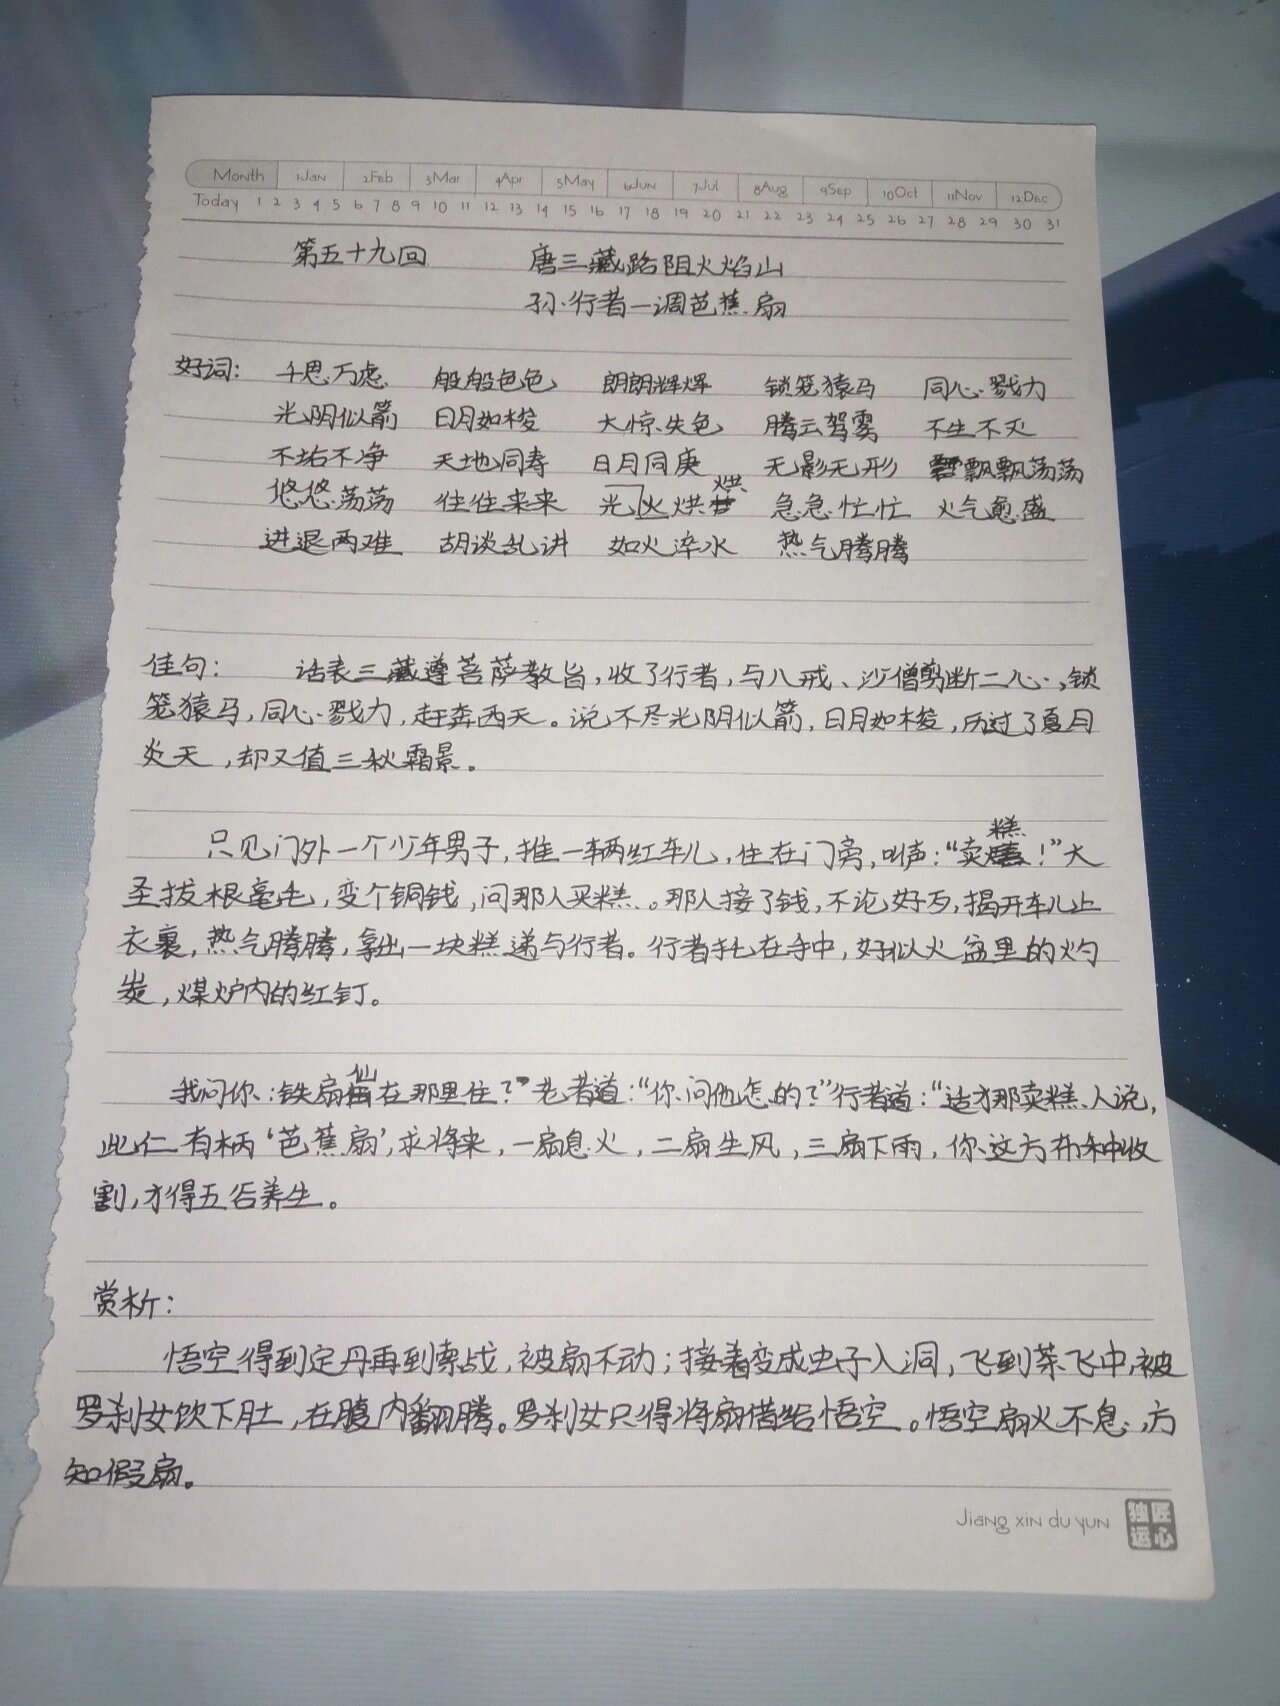 Month 1Jan 2Feb 3Mar 4Apr 5May 6Jun 7Jul 8Aug 9Sep 10Oct 11Nov 12Dec
Today 1 2 3 4 5 6 7 8 9 10 11 12 13 14 15 16 17 18 19 20 21 22 23 24 25 26 27 28 29 30 31
第五十九回 唐三藏路阻火焰山
孙行者一调芭蕉扇
好词: 千思万虑 般般色色 朗朗辉辉 锁笼猿马 同心戮力
光阴似箭 日月如梭 大惊失色 腾云驾雾 不生不灭
不垢不净 天地同寿 日月同庚 无影无形 飘飘荡荡
悠悠荡荡 往往来来 火光烘烘 急急忙忙 火气愈盛
进退两难 胡谈乱讲 如火淬水 热气腾腾
佳句: 话表三藏遵菩萨教旨,收了行者,与八戒、沙僧剪断二心,锁
笼猿马,同心戮力,赶奔西天。说不尽光阴似箭,日月如梭,历过了夏月
炎天,却又值三秋霜景。
只见门外一个少年男子,推一辆红车儿,住在门旁,叫声:“卖糕!”大
圣拔根毫毛,变个铜钱,问那人买糕。那人接了钱,不论好歹,揭开车儿上
衣裹,热气腾腾,拿出一块糕递与行者。行者托在手中,好似火盆里的灼
炭,煤炉内的红钉。
我问你:铁扇仙在那里住?”老者道:“你问他怎的?”行者道:“适才那卖糕人说,
此仁有柄‘芭蕉扇’,求将来,一扇息火,二扇生风,三扇下雨,你这方布种收
割,才得五谷养生。
赏析:
悟空得到定丹再到索战,被扇不动;接着变成虫子入洞,飞到茶飞中,被
罗刹女饮下肚,在腹内翻腾。罗刹女只得将扇借给悟空。悟空扇火不息,方
知假扇。
Jiang xin du yun 独匠运心